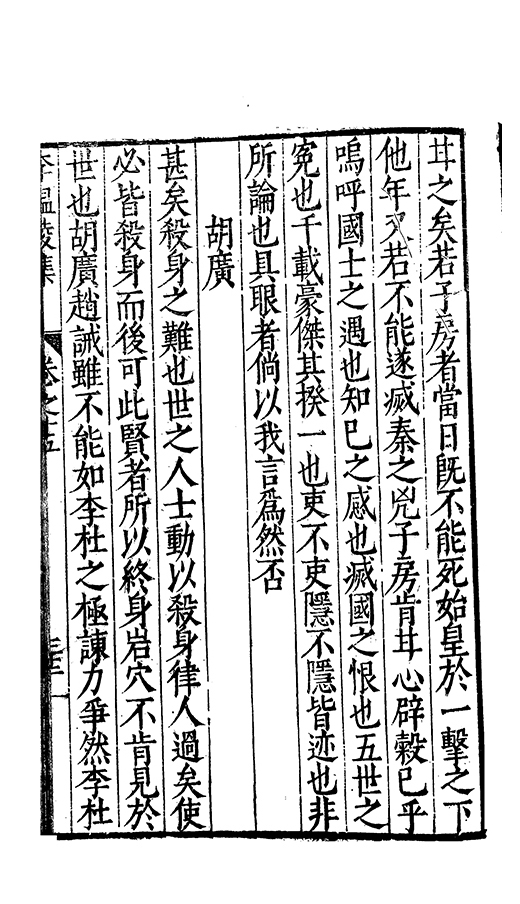 甘之矣若子房者當日既不能死始皇於一擊之下
他年又若不能遂滅秦之兇子房肯甘心辟穀已乎
嗚呼國士之遇也知已之感也滅國之恨也五世之
冤也千載豪傑其揆一也吏不吏隱不隱皆迹也非
所論也具眼者倘以我言爲然否
胡廣
甚矣殺身之難也世之人士動以殺身律人過矣使
必皆殺身而後可此賢者所以終身岩穴不肯見於
世也胡廣趙誡雖不能如李杜之極諫力爭然李杜
李溫陵集 卷之十五 三十二